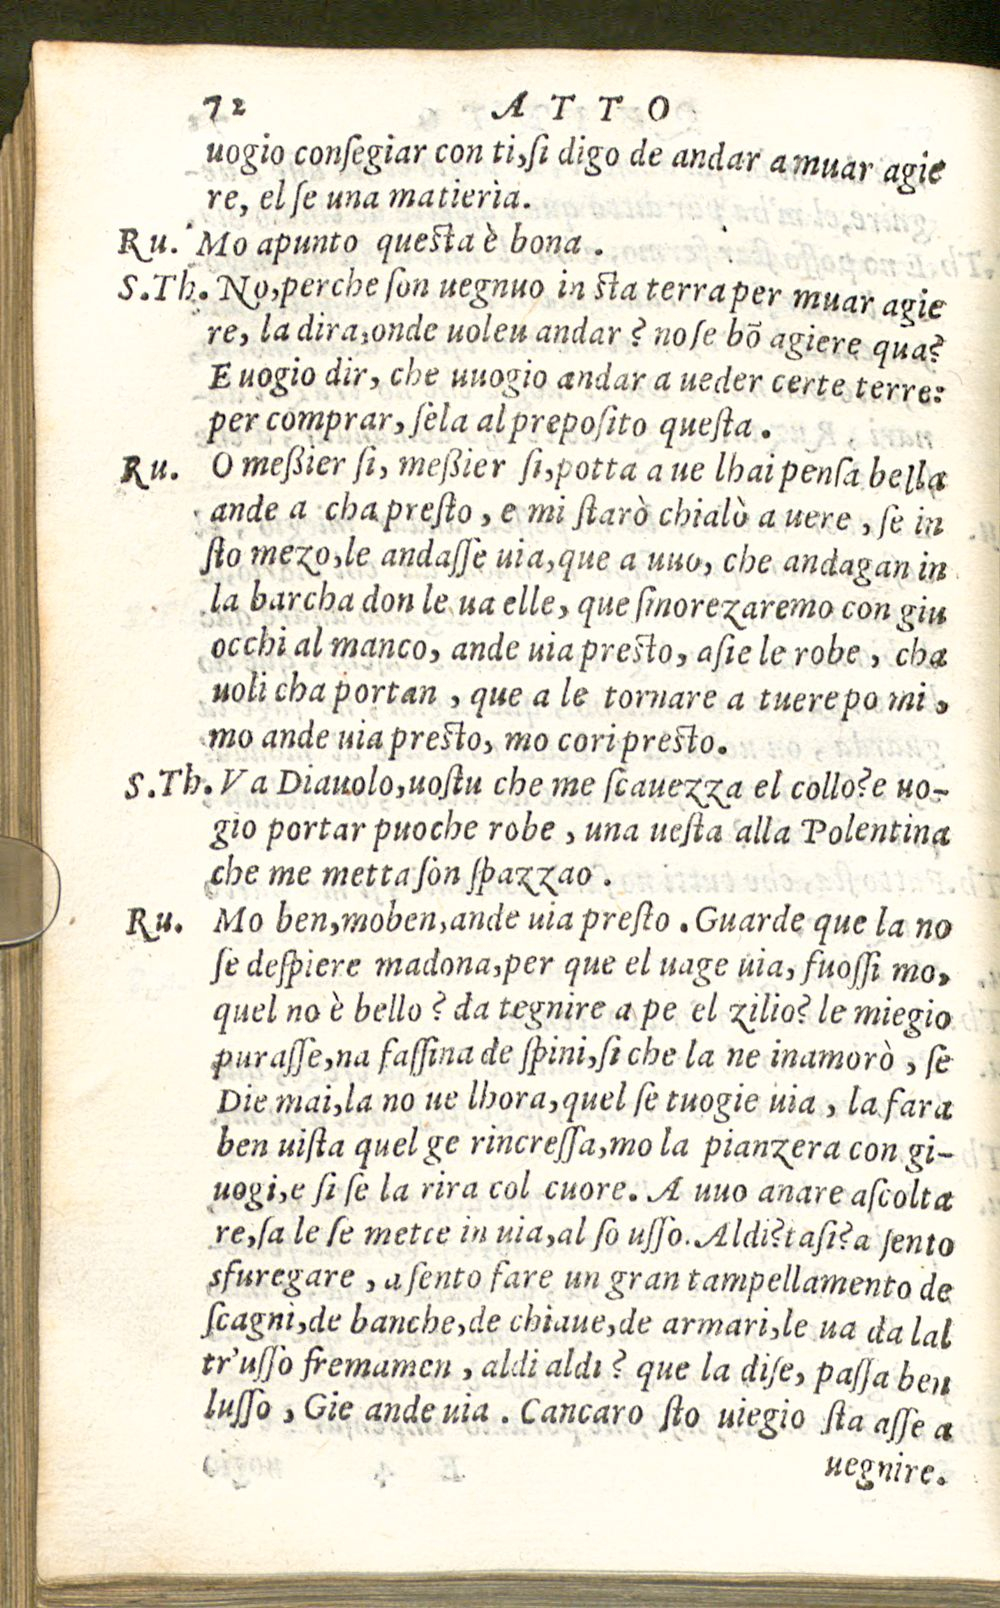 72 ATTO
uogio conſegiar con ti,ſi digo de andar a muar agie
re, el ſe una matieria.
Ru. Mo apunto queſta è bona .
S.Th. No,perche ſon uegnuo in ſta terra per muar agie
re, la dira,onde uoleu andar ? no ſe bō agiere qua?
E uogio dir, che uuogio andar a ueder certe terre:
per comprar, ſela al prepoſito queſta .
Ru. O meßier ſi, meßier ſi,potta a ue lhai penſa bella
ande a cha preſto , e mi ſtarò chialò a uere , ſe in
ſto mezo,le andaſſe uia,que a uuo, che andagan in
la barcha don le ua elle, que ſmorezaremo con giu
occhi al manco, ande uia preſto, aſie le robe , cha
uoli cha portan , que a le tornare a tuere po mi ,
mo ande uia preſto, mo cori preſto.
S.Th. Va Diauolo,uoſtu che me ſcauezza el collo?e uo-
gio portar puoche robe , una ueſta alla Polentina
che me metta ſon ſpazzao .
Ru. Mo ben,moben,ande uia preſto . Guarde que la no
ſe deſpiere madona,per que el uage uia, fuoſſi mo,
quel no è bello ? da tegnire a pe el zilio? le miegio
puraſſe,na faſſina de ſpini,ſi che la ne inamorò , ſe
Die mai,la no ue lhora,quel ſe tuogie uia , la fara
ben uiſta quel ge rincreſſa,mo la pianzera con gi-
uogi,e ſi ſe la rira col cuore. A uuo anare aſcolta
re,ſa le ſe mette in uia,al ſo uſſo. Aldi?taſi?a ſento
sfuregare , a ſento fare un gran tampellamento de
ſcagni,de banche,de chiaue,de armari,le ua da lal
tr'uſſo fremamen , aldi aldi ? que la diſe, paſſa ben
luſſo , Gie ande uia . Cancaro ſto uiegio ſta aſſe a
uegnire.